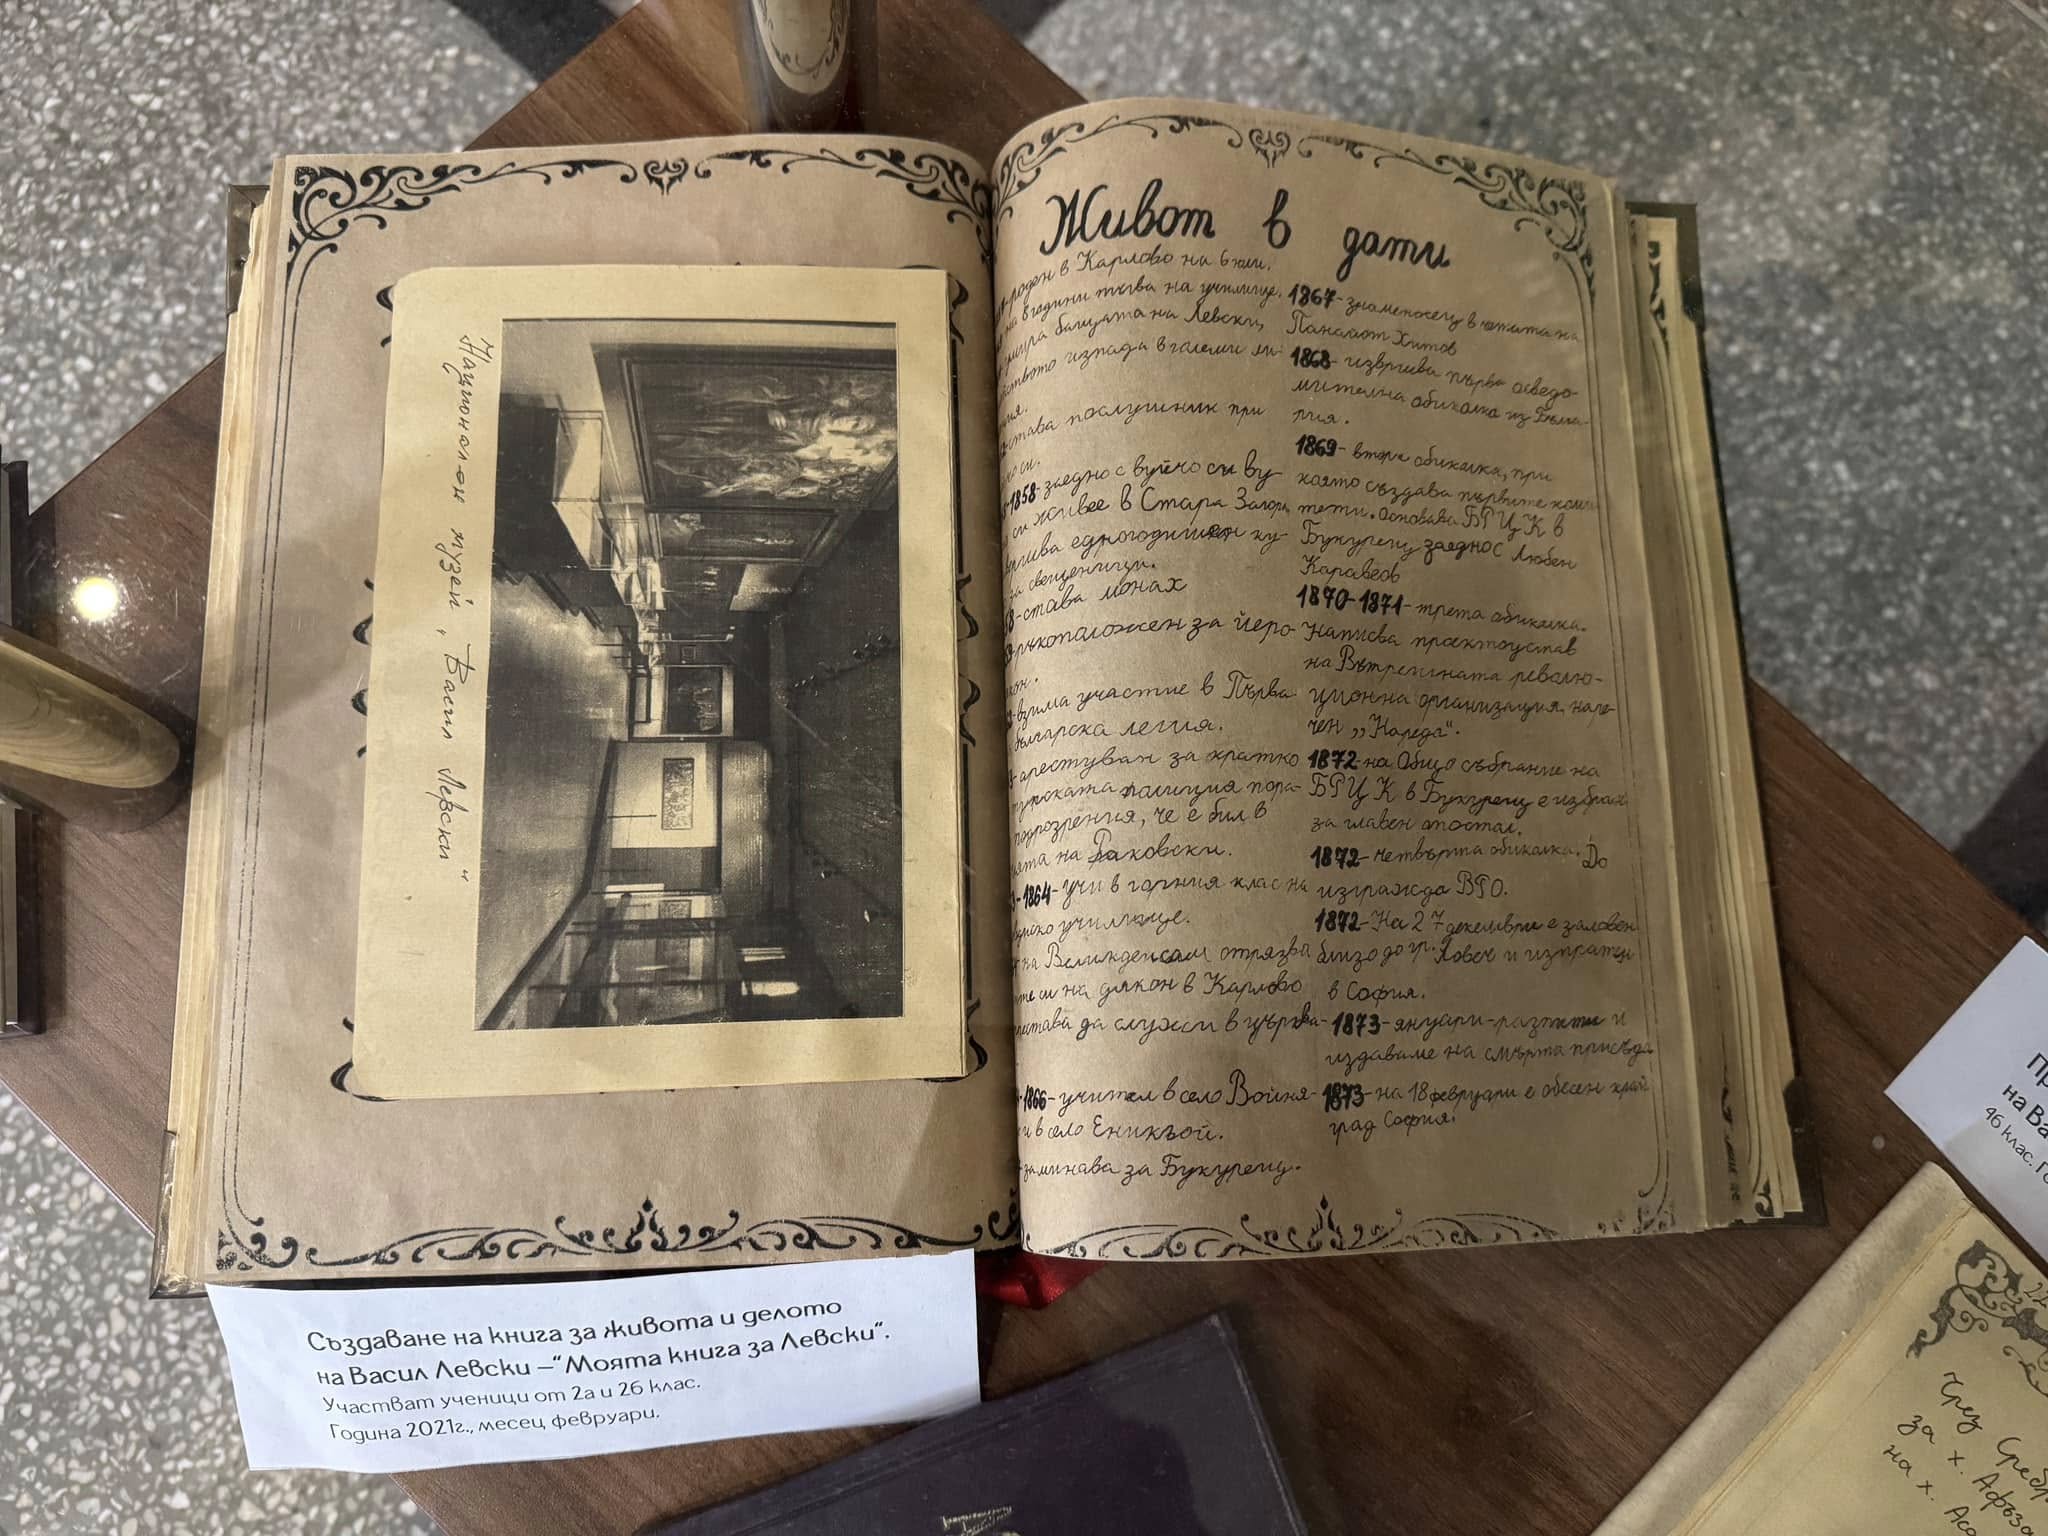 Национален музей „Васил Левски“
Живот в дати
роден в Карлово на 6 юли.
на 8 години тръгва на училище.
умира бащата на Левски,
изпада в големи ли-
става послушник при
си.
1858- заедно с вуйчо си Ву-
си живее в Стара Загора,
едногодишен ку-
за свещеници.
става монах
ръкоположен за йеро-
взима участие в Първа
българска легия.
арестуван за кратко
турската полиция пора-
подозрения, че е бил в
на Раковски.
1864- учи в горния клас на
училище.
на Великден сам отрязва
си на дякон в Карлово
да служи в църква-
1866- учител в село Войня-
и в село Еникьой.
заминава за Букурещ.
1867- знаменосец в четата на
Панайот Хитов
1868- извършва първа осведо-
мителна обиколка из Бълга-
рия.
1869- втора обиколка, при
която създава първите коми-
тети. Основава БРЦК в
Букурещ заедно с Любен
Каравелов
1870-1871- трета обиколка.
Написва проектоустав
на Вътрешната револю-
ционна организация, наре-
чен „Нареда“.
1872- на Общо събрание на
БРЦК в Букурещ е избран
за главен апостол.
1872- четвърта обиколка. До
изгражда ВРО.
1872- На 27 декември е заловен
близо до гр. Ловеч и изпратен
в София.
1873- януари- разпити и
издаване на смъртна присъда
1873- на 18 февруари е обесен край
град София.
Създаване на книга за живота и делото
на Васил Левски –“Моята книга за Левски“.
Участват ученици от 2а и 2б клас.
Година 2021г., месец февруари.
на Ва
4б клас. Го
Чрез
за х.
на х.